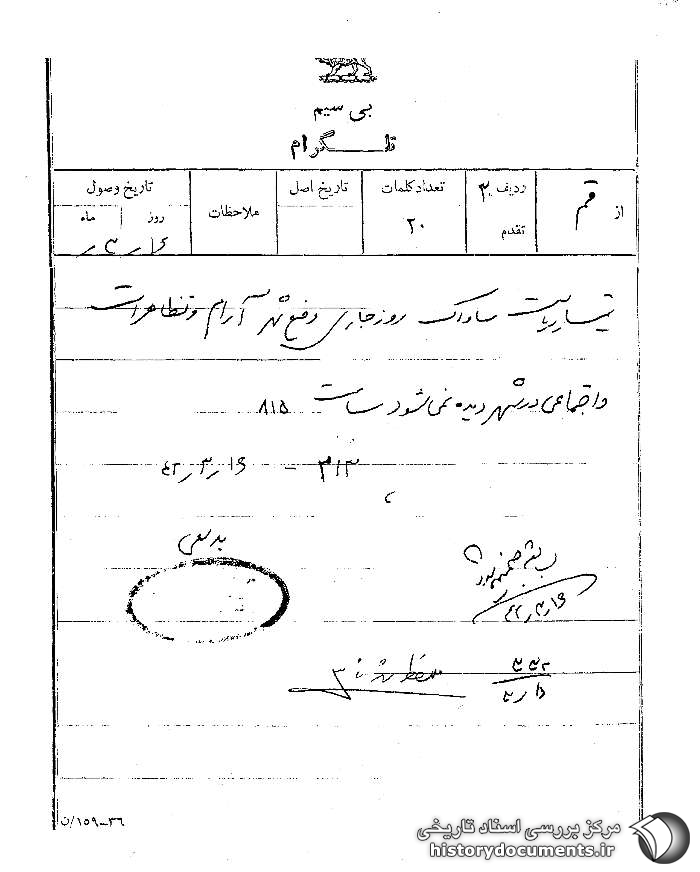 بی سیم
تلگرام
از قم
ردیف ۳
تقدم
تعداد کلمات
۲۰
تاریخ اصل
ملاحظات
تاریخ وصول
روز ماه
۱۶ ر ۳ ر
تیمسار ریاست ساواک روز جاری وضع شهر آرام و تظاهرات
و اجتماعی در شهر دیده نمی‌شود ساعت ۸۱۵
۳۱۳ - ۱۶ر۳ر۴۲
بدیعی
۱۶ر۳ر۴۲
ن/۱۵۹-۳۶
مرکز بررسی اسناد تاریخی
historydocuments.ir